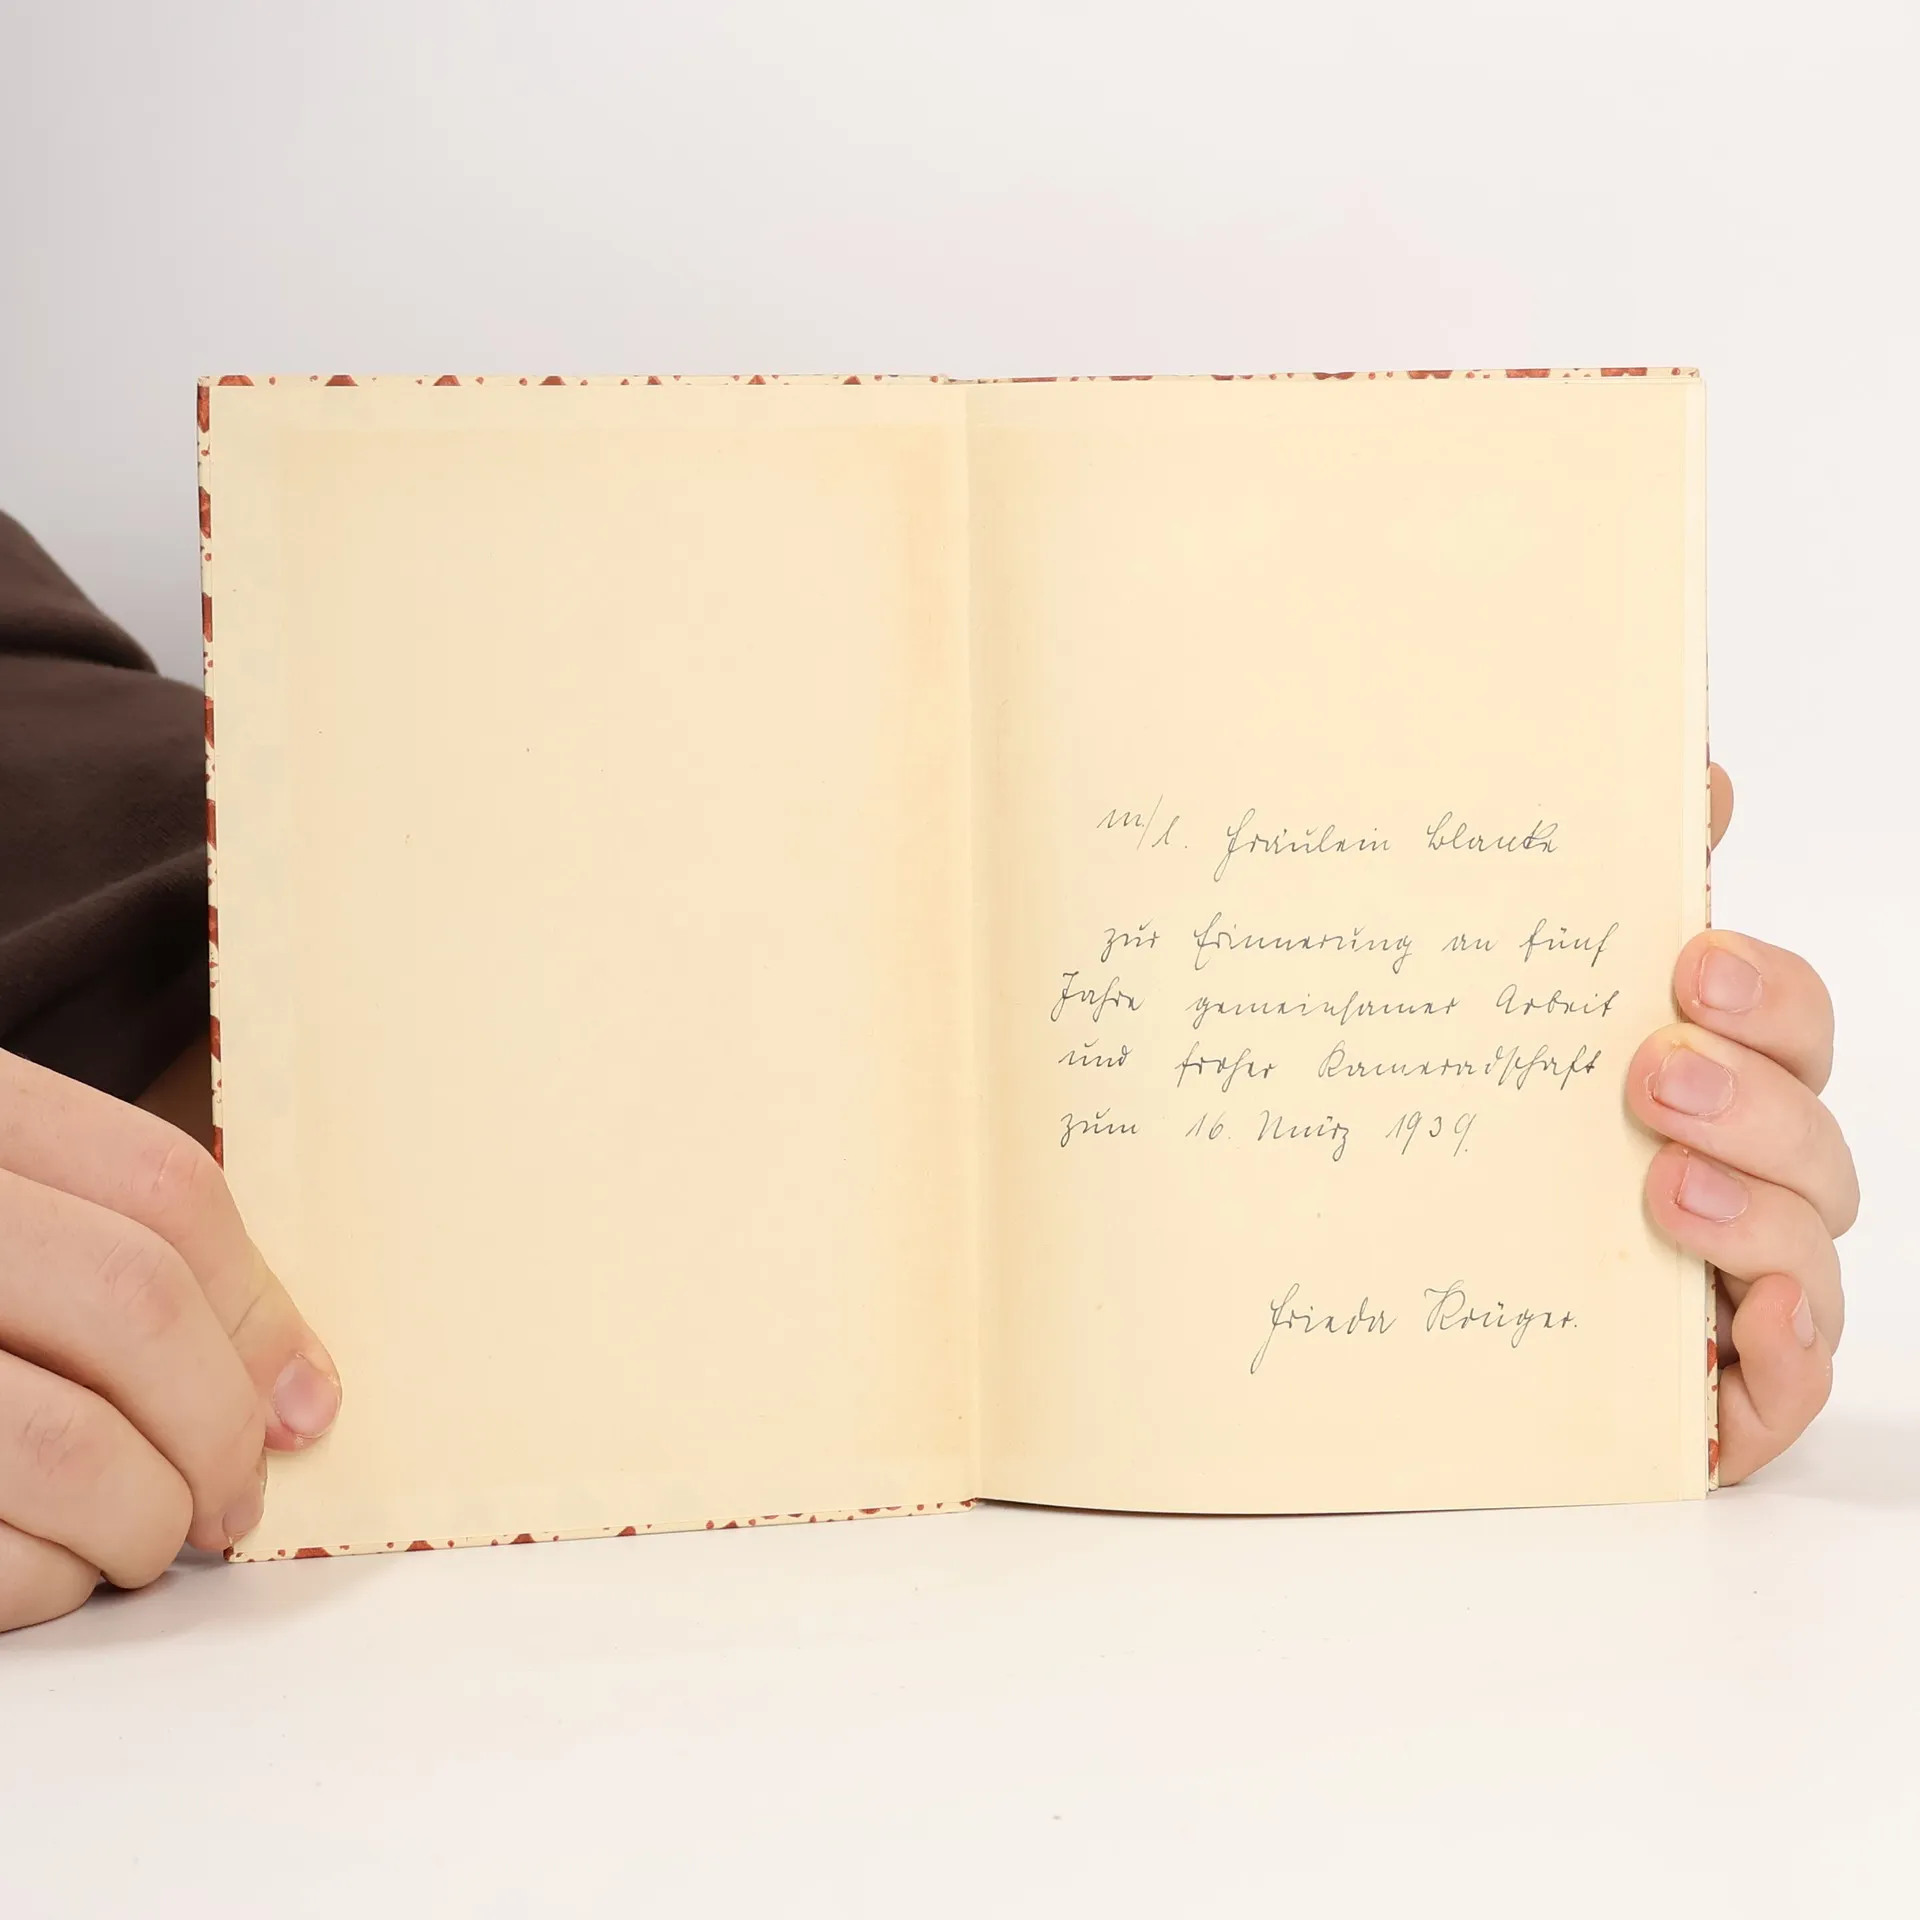 m/l. Fräulein Blanke
zur Erinnerung an fünf
Jahre gemeinsamer Arbeit
und froher Kameradschaft
zum 16. März 1939.
Frieda Krüger.